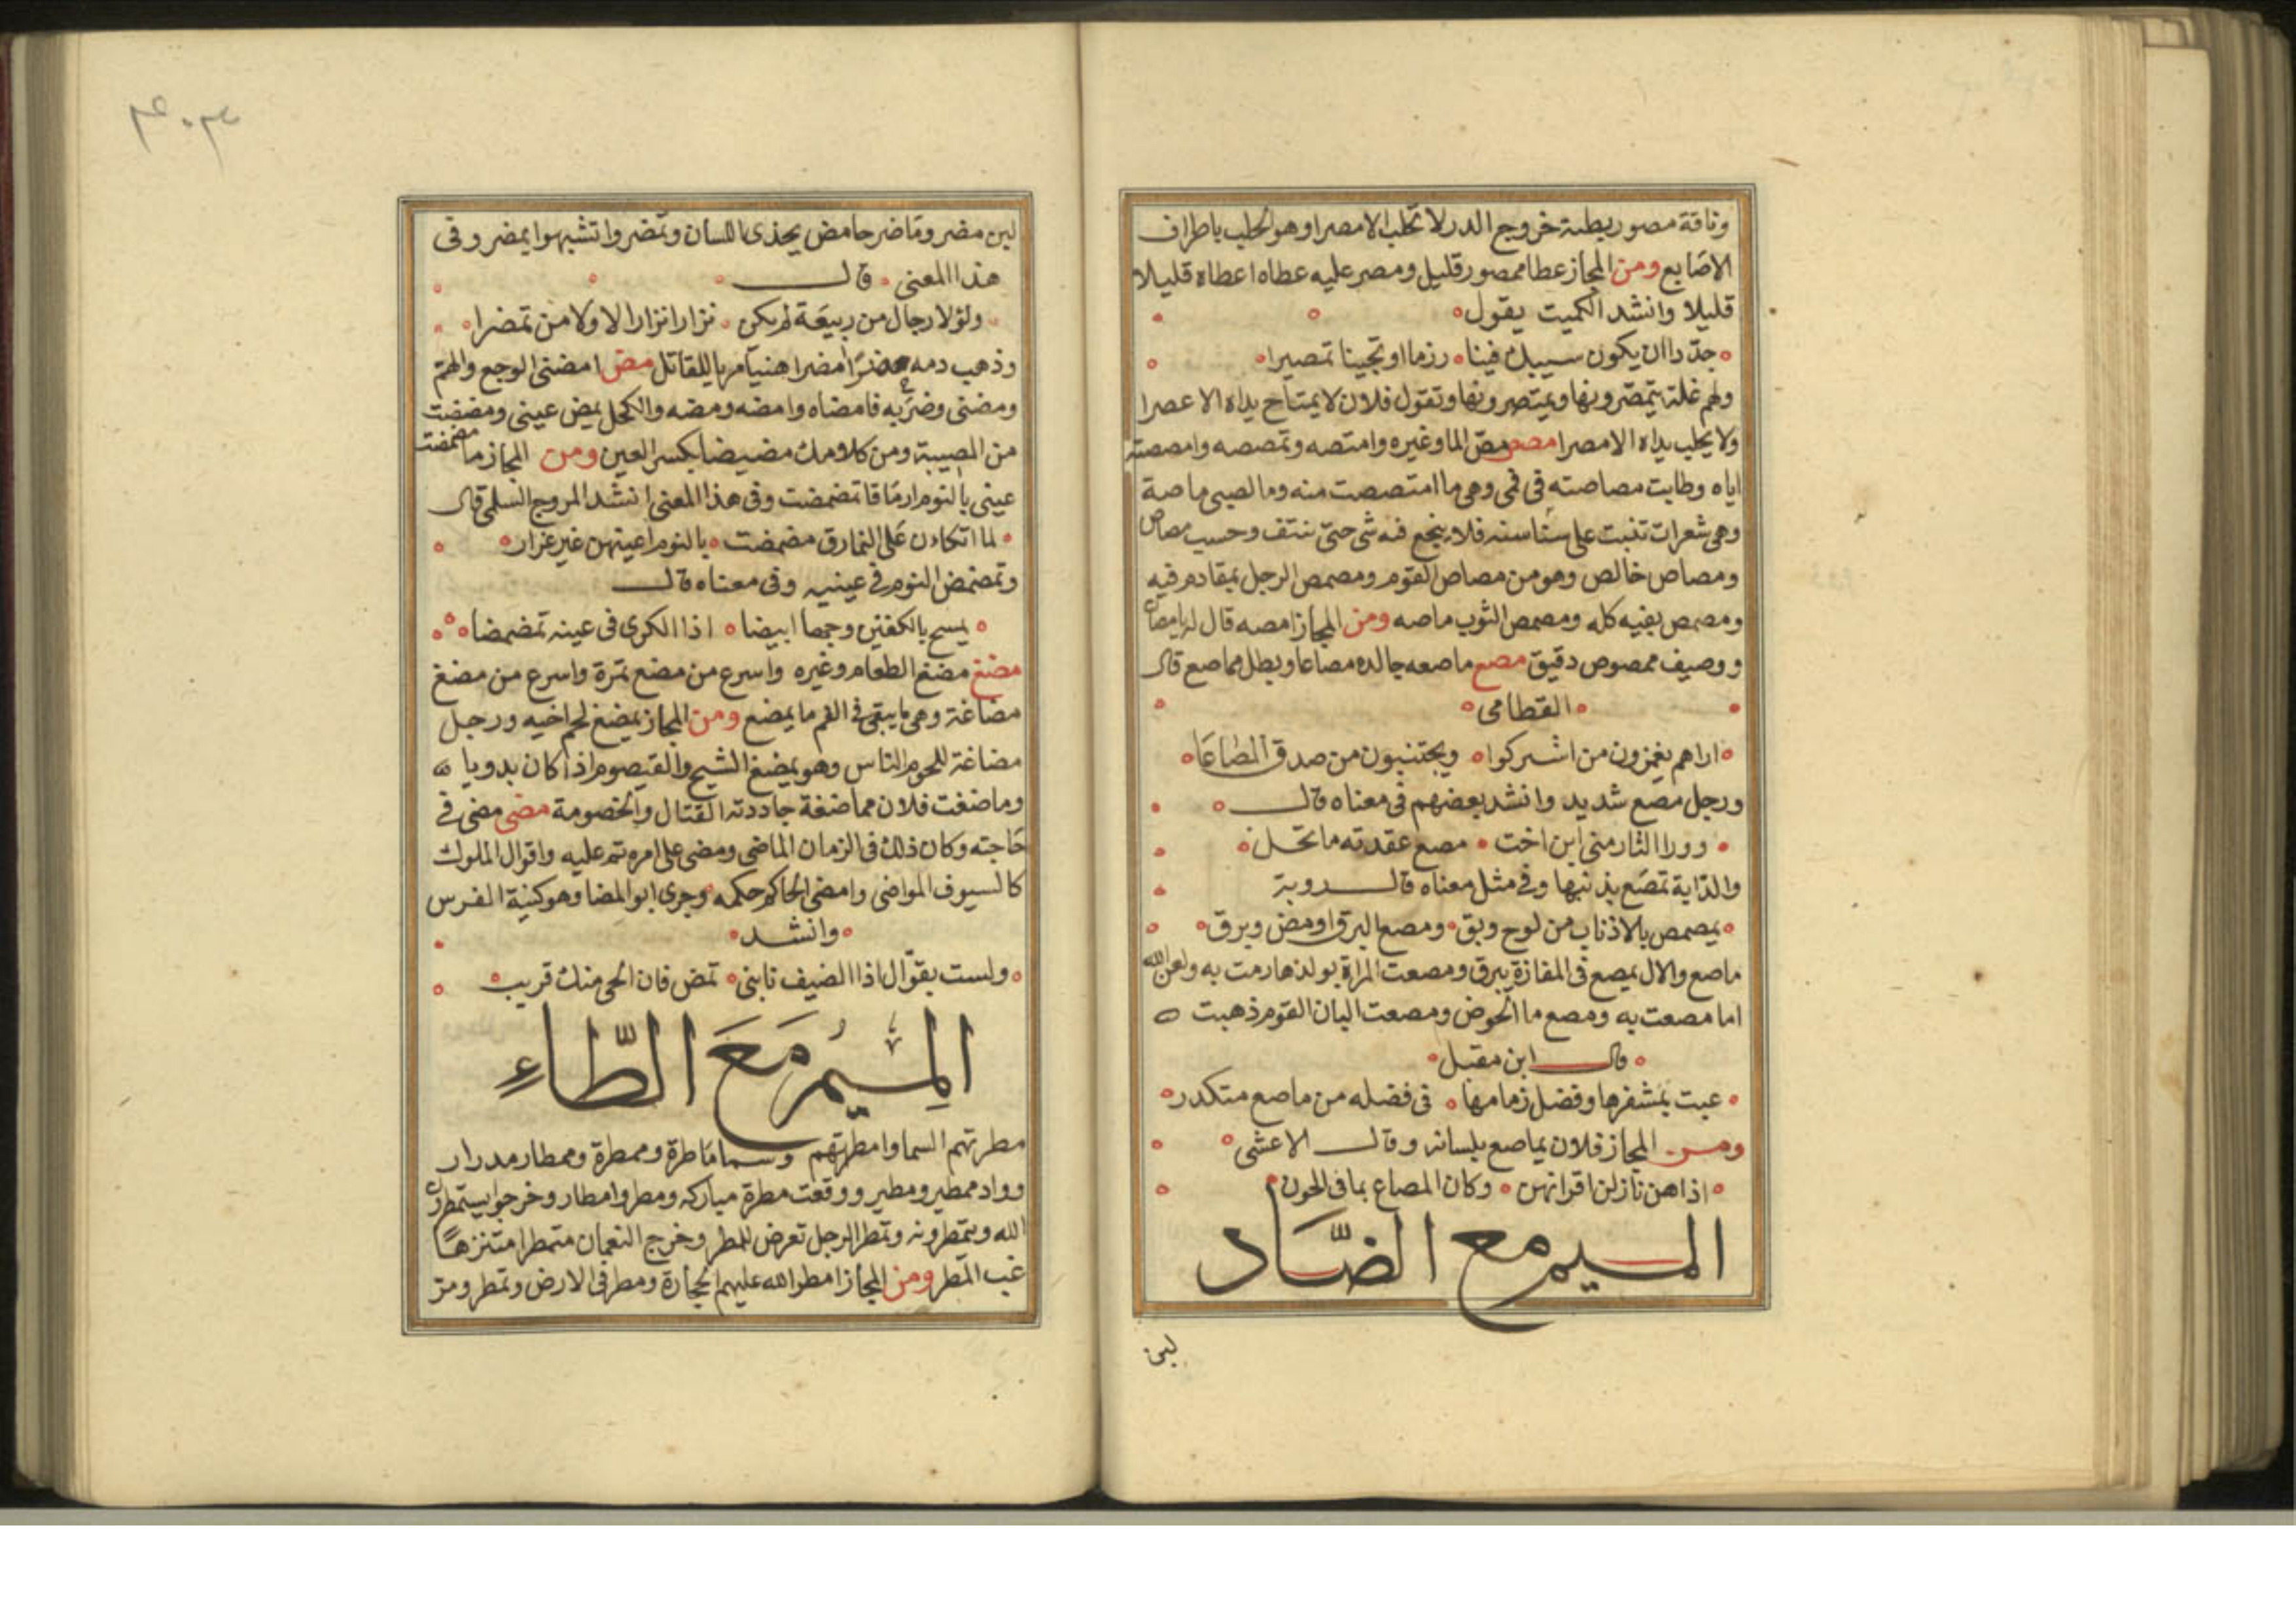 وناقة مصور بطيئة خروج الدر لا تحلب الا مصرا وهو الحلب باطراف
الاصابع ومن المجاز عطا ممصور قليل ومصر عليه عطاه اعطاه قليلا
قليلا وانشد الكميت يقول
جدّ راان يكون سيبك فينا رزما او تجينا تمصيرا
ولهم غلة يتمصّرونها ويمتصرونها وتقول فلان لا يمتاح يداه الا عصرا
ولا يحلب يداه الا مصرا مصص مصّ الما وغيره وامتصه وتمصصه وامصصته
اياه وطابت مصاصته في فمي وهي ما امتصصت منه وما لصبي ماصة
وهي شعرات تنبت على سناسنه فلا ينجع فيه شي حتى تنتف وحسب مصاص
ومصاص خالص وهو من مصاص القوم ومصمص الرجل بمقادم فيه
ومصمص بفيه كله ومصمص الثوب ماصه ومن المجاز امصه قال له يا مصان
ووصيف ممصوص دقيق مصع ماصعه جالده مصاعا وبطل مماصع قال
القطامي
اراهم يغمزون من اشتركوا ويجتنبون من صدق المصاعا
ورجل مصع شديد وانشد بعضهم في معناه قال
وورا الثار مني ابن اخت مصع عقدته ما تحل
والدّابة تمصع بذنبها وفي مثل معناه قال روبة
يمصمص بالاذناب من لوح وبق ومصع البرق اومض وبرق
ماصع والال يمصع في المفازة يبرق ومصعت المراة بولدها رمت به ولعن الله
اما مصعت به ومصع ما الحوض ومصعت البان القوم ذهبت
قال ابن مقبل
عبت بمشفرها وفضل زمامها في فضله من ماصع متكدر
ومن المجاز فلان يماصع بلسانه وقال الاعشى
اذا هن نازلن اقرانهن وكان المصاع بما في الجون
الميم مع الضَّاد
لبن
لبن مضر وماضر حامض يحذى اللسان وتمضروا تشبهوا بمضر وفي
هذا المعنى قال
ولولا رجال من ربيعَة لم يكن نزارا نزارا لا ولا من تمضرا
وذهب دمه خضرًا مضرا هنيا مريا للقاتل مضّ امضني الوجع والهم
ومضني وضربه فامضاه وامضه ومضه والكحل يمض عيني ومضضت
من المصيبة ومن كلامك مضيضا بكسر العين ومن المجاز ما مضمضت
عيني بالنوم ارمَاقا تمضمضت وفي هذا المعنى انشد المروج السلمي قال
لما اتكان على النمارق مضمضت بالنوم اعينهن غير غرار
وتمضمض النوم في عينيه وفي معناه قال
يمسح بالكفين وجها ابيضا اذا الكرى في عينه تمضمضا
مضغ مضغ الطعام وغيره واسرع من مضغ تمرة واسرع من مضغ
مضاغة وهي ما يبقى في الفم ما يمضغ ومن المجاز يمضغ لحم اخيه ورجل
مضاغة للحوم الناس وهو يمضغ الشيح والقيصوم اذا كان بدويا
وماضغت فلان مماضغة جاددته القتال والخصومة مضى مضى في
حَاجته وكان ذلك في الزمان الماضي ومضى على امره تم عليه واقوال الملوك
كالسيوف المواضي وامضى الحاكم حكمه وجرى ابو المضا وهو كنية الفرس
وانشد
ولست بقوّال اذا الضيف نابني تمض فان الحي منك قريب
المِيْمُ مَعَ الطَّاءِ
مطرتهم السما وامطرتهم وسما مَاطرة وممطرة وممطار مدرار
وواد ممطير ومطير ووقعت مطرة مباركه ومطر وامطار وخرجوا يستمطرون
الله ويتمطرونه وتمطر الرجل تعرض للمطر وخرج النعمان متمطرا متنزهًا
غب المَطر ومن المجاز امطر الله عليهم الحجارة ومطر في الارض وتمطر ومرّ